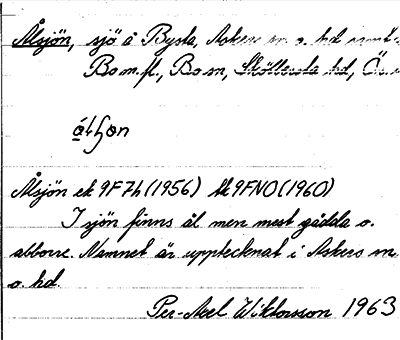 Ålsjön, sjö å Bysta, Askers sn o. hd samt
Bo m.fl., Bo sn, Sköllersta hd, Ö
Ålsjön ek 9F7h (1956) tk 9FNO (1960)
I sjön finns ål men mest gädda o.
abborre. Namnet är upptecknat i Askers sn
o. hd.
Per-Axel Wiktorsson 1963